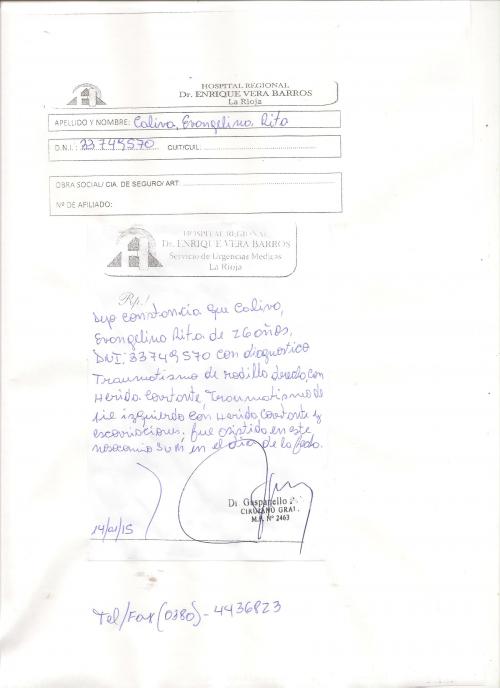 HOSPITAL REGIONAL
Dr. ENRIQUE VERA BARROS
La Rioja
APELLIDO Y NOMBRE: Caliva, Evangelina Rita
D.N.I.: 33749570 CUIT/CUIL:
OBRA SOCIAL/ CIA. DE SEGURO/ ART
Nº DE AFILIADO:
HOSPITAL REGIONAL
Dr. ENRIQUE VERA BARROS
Servicio de Urgencias Medicas
La Rioja
Rp.!
Dejo constancia que Caliva,
Evangelina Rita de 26 años,
DNI: 33749570 con diagnostico
Traumatismo de rodilla derecha, con
Herida Cortante Traumatismo de
pie izquierdo con Herida Cortante y
escoriaciones. fue asistido en este
nosocomio SUM en el dia de la fecha.
Dr. Gaspanello
CIRUJANO GRAL.
M.P. Nº 2463
14/01/15
Tel/Fax (0380) - 4436823